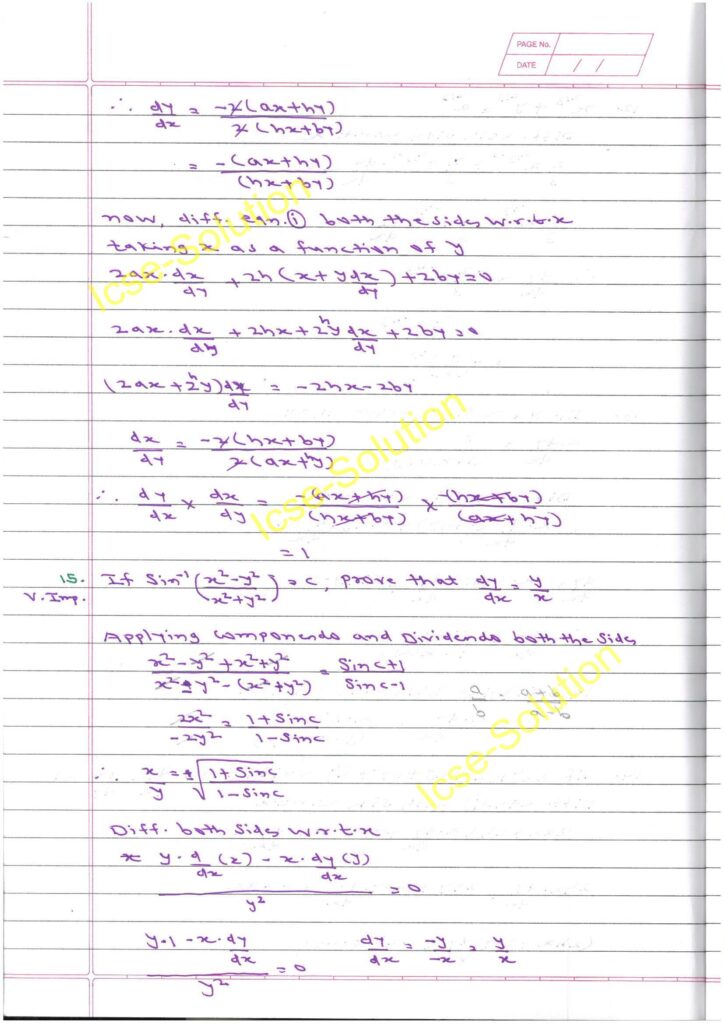 PAGE No.
DATE / /
∴ dy/dx = -2(ax+hy)/2(hx+by)
= -(ax+hy)/(hx+by)
now, diff. eqn. ① both the sides w.r.t.x
taking x as a function of y
2ax·dx/dy + 2h(x+y dx/dy)+2by=0
2ax·dx/dy + 2hx+2hy dx/dy +2by=0
(2ax+2hy)dx/dy = -2hx-2by
dx/dy = -2(hx+by)/2(ax+hy)
∴ dy/dx × dx/dy = -(ax+hy)/(hx+by) × -(hx+by)/(ax+hy)
= 1
15. If Sin⁻¹(x²-y²/x²+y²)=c, prove that dy/dx = y/x
V. Imp.
Applying componendo and Dividendo both the sides
x²-y²+x²+y²/x²-y²-(x²+y²) = Sinc+1/Sinc-1
a/b = a+b/a-b
2x²/-2y² = 1+Sinc/1-Sinc
∴ x/y = ±√1+Sinc/1-Sinc
Diff. both sides w.r.t.x
y·d/dx(x) - x·dy/dx(y)/y² = 0
y·1-x·dy/dx/y² = 0 dy/dx = -y/-x = y/x
Icse-Solution
Icse-Solution
Icse-Solution